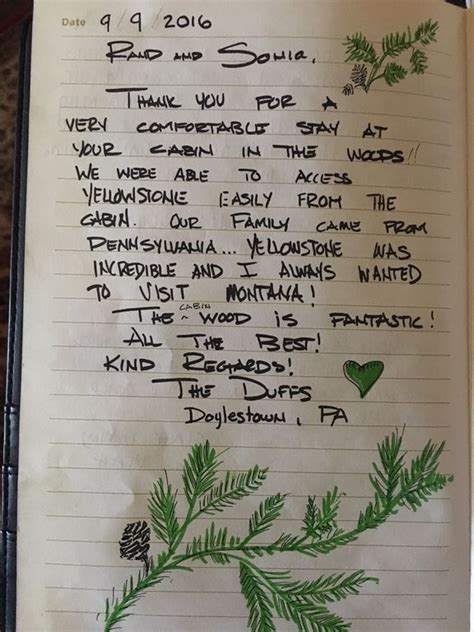 Date 9/9/2016
Rand and Sonia,
Thank you for a
very comfortable stay at
your cabin in the woods!!
We were able to access
Yellowstone easily from the
cabin. Our family came from
Pennsylvania... Yellowstone was
incredible and I always wanted
to visit Montana!
The ^cabin wood is fantastic!
All the Best!
Kind Regards!
The Duffs
Doylestown, PA